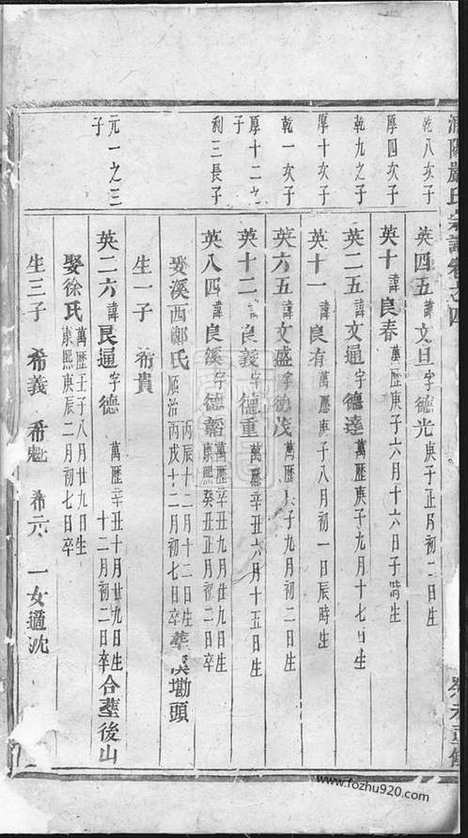 嚴氏宗譜卷之四
乾八次子
英四五 諱文旦 字德光 庚子正月初二日生
厚四次子
英十 諱良春 萬歷庚子六月十六日子時生
乾九之子
英二五 諱文通 字德達 萬歷庚子九月十七日生
厚十次子
英十一 諱良有 萬歷庚子八月初一日辰時生
乾一次子
英六五 諱文盛 字德茂 萬歷 子九月初二日生
厚十二之子
英十二 諱良義 字德重 萬歷辛丑六月十五日生
利三長子
英八四 諱良溪 字德韜 萬歷辛丑九月廿九日生
康熙癸丑正月初二日卒
娶溪西鄭氏 丙辰十二月十二日生
順治丙戌十二月初七日卒 葬 塘頭
生一子 希貴
元一之三子
英二六 諱良通 字德 萬歷辛丑十月廿九日生
十二月初二日卒 合葬後山
娶徐氏 萬歷壬子八月廿九日生
康熙庚辰二月初七日卒
生三子 希義 希魁 希六 一女適沈
www.fozhu920.com